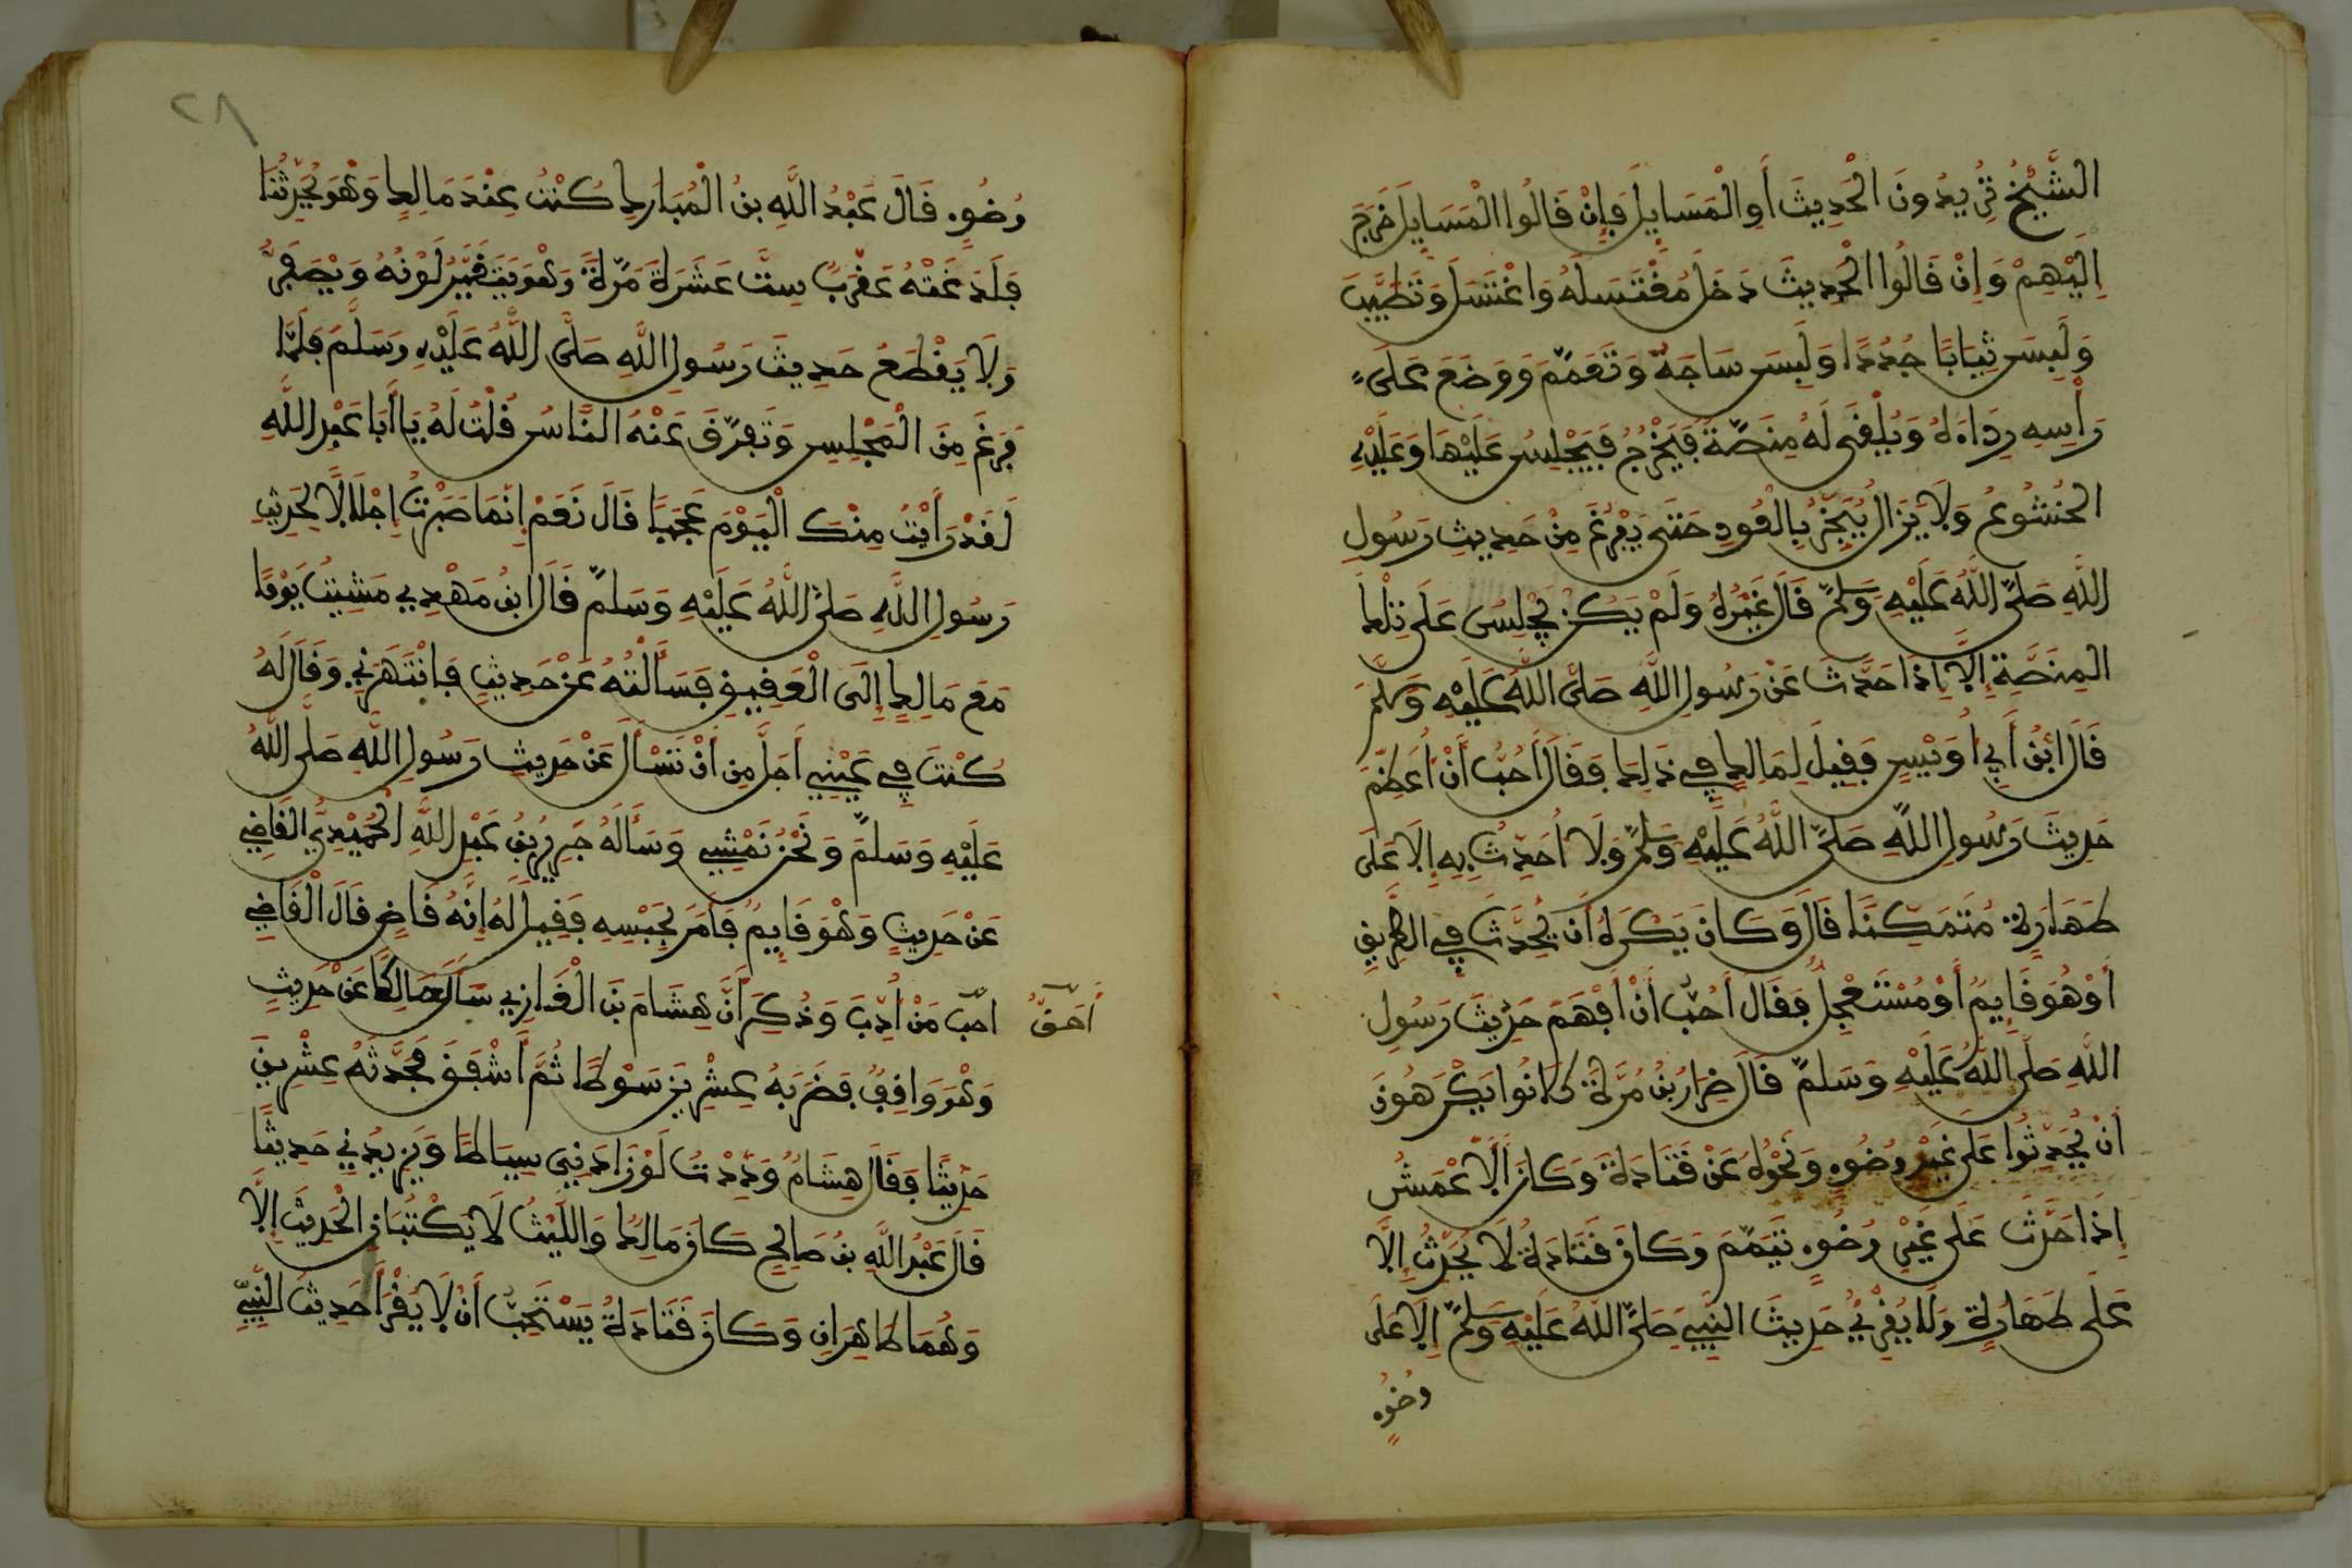 الشَّيْخُ تُرِيدُونَ الْحَدِيثَ أَوِ الْمَسَايِلَ فَإِنْ قَالُوا الْمَسَايِلَ خَرَجَ
إِلَيْهِمْ وَإِنْ قَالُوا الْحَدِيثَ دَخَلَ مُغْتَسَلَهُ وَاغْتَسَلَ وَتَطَيَّبَ
وَلَبِسَ ثِيَابًا جُدُدًا وَلَبِسَ سَاجَهُ وَتَعَمَّمَ وَوَضَعَ عَلَى
رَأْسِهِ رِدَاءَهُ وَيُلْقَى لَهُ مِنَصَّةٌ فَيَخْرُجُ فَيَجْلِسُ عَلَيْهَا وَعَلَيْهِ
الْخُشُوعُ وَلَا يَزَالُ يُبَخَّرُ بِالْعُودِ حَتَّى يَفْرُغَ مِنْ حَدِيثِ رَسُولِ
اللَّهِ صَلَّى اللَّهُ عَلَيْهِ وَسَلَّمَ قَالَ غَيْرُهُ وَلَمْ يَكُنْ يَجْلِسُ عَلَى تِلْكَ
الْمِنَصَّةِ إِلَّا إِذَا حَدَّثَ عَنْ رَسُولِ اللَّهِ صَلَّى اللَّهُ عَلَيْهِ وَسَلَّمَ
قَالَ ابْنُ أَبِي أُوَيْسٍ فَقِيلَ لِمَالِكٍ فِي ذَلِكَ فَقَالَ أُحِبُّ أَنْ أُعَظِّمَ
حَدِيثَ رَسُولِ اللَّهِ صَلَّى اللَّهُ عَلَيْهِ وَسَلَّمَ وَلَا أُحَدِّثُ بِهِ إِلَّا عَلَى
طَهَارَةٍ مُتَمَكِّنًا قَالَ وَكَانَ يَكْرَهُ أَنْ يُحَدِّثَ فِي الطَّرِيقِ
أَوْ هُوَ قَايِمٌ أَوْ مُسْتَعْجِلٌ فَقَالَ أُحِبُّ أَنْ أَفْهَمَ حَدِيثَ رَسُولِ
اللَّهِ صَلَّى اللَّهُ عَلَيْهِ وَسَلَّمَ قَالَ ضِرَارُ بْنُ مُرَّةَ كَانُوا يَكْرَهُونَ
أَنْ يُحَدِّثُوا عَلَى غَيْرِ وُضُوءٍ وَنَحْوُهُ عَنْ قَتَادَةَ وَكَانَ الْأَعْمَشُ
إِذَا حَدَّثَ عَلَى غَيْرِ وُضُوءٍ تَيَمَّمَ وَكَانَ قَتَادَةُ لَا يُحَدِّثُ إِلَّا
عَلَى طَهَارَةٍ وَلَا يَقْرَأُ حَدِيثَ النَّبِيِّ صَلَّى اللَّهُ عَلَيْهِ وَسَلَّمَ إِلَّا عَلَى
وُضُوءٍ
٢٨
وُضُوءٍ قَالَ عَبْدُ اللَّهِ بْنُ الْمُبَارَكِ كُنْتُ عِنْدَ مَالِكٍ وَهْوَ يُحَدِّثُنَا
فَلَدَغَتْهُ عَقْرَبٌ سِتَّ عَشَرَةَ مَرَّةً وَهْوَ يَتَغَيَّرُ لَوْنُهُ وَيَصْفَرُّ
وَلَا يَقْطَعُ حَدِيثَ رَسُولِ اللَّهِ صَلَّى اللَّهُ عَلَيْهِ وَسَلَّمَ فَلَمَّا
فَرَغَ مِنَ الْمَجْلِسِ وَتَفَرَّقَ عَنْهُ النَّاسُ قُلْتُ لَهُ يَا أَبَا عَبْدِ اللَّهِ
لَقَدْ رَأَيْتُ مِنْكَ الْيَوْمَ عَجَبًا قَالَ نَعَمْ إِنَّمَا صَبَرْتُ إِجْلَالًا لِحَدِيثِ
رَسُولِ اللَّهِ صَلَّى اللَّهُ عَلَيْهِ وَسَلَّمَ قَالَ ابْنُ مَهْدِي مَشَيْتُ يَوْمًا
مَعَ مَالِكٍ إِلَى الْعَقِيقِ فَسَأَلْتُهُ عَنْ حَدِيثٍ فَانْتَهَرَنِي وَقَالَ لَهُ
كُنْتَ فِي عَيْنِي أَجَلَّ مِنْ أَنْ تَسْأَلَ عَنْ حَدِيثِ رَسُولِ اللَّهِ صَلَّى اللَّهُ
عَلَيْهِ وَسَلَّمَ وَنَحْنُ نَمْشِي وَسَأَلَهُ جَرِيرُ بْنُ عَبْدِ اللَّهِ الْحُمَيْدِيُّ الْقَاضِي
عَنْ حَدِيثٍ وَهْوَ قَايِمٌ فَأَمَرَ بِحَبْسِهِ فَقِيلَ لَهُ إِنَّهُ قَاضٍ قَالَ الْقَاضِي
أَحَقُّ
أحب مَنْ أُدِّبَ وَذُكِرَ أَنَّ هِشَامَ بْنَ الْغَازِي سَأَلَ مَالِكًا عَنْ حَدِيثٍ
وَهْوَ وَاقِفٌ فَضَرَبَهُ عِشْرِينَ سَوْطًا ثُمَّ أَشْفَقَ فَحَدَّثَهُ عِشْرِينَ
حَدِيثًا فَقَالَ هِشَامٌ وَدِدْتُ لَوْ زَادَنِي سِيَاطًا وَيَزِيدُنِي حَدِيثًا
قَالَ عَبْدُ اللَّهِ بْنُ صَالِحٍ كَانَ مَالِكٌ وَاللَّيْثُ لَا يَكْتُبَانِ الْحَدِيثَ إِلَّا
وَهُمَا طَاهِرَانِ وَكَانَ قَتَادَةُ يَسْتَحِبُّ أَنْ لَا يَقْرَأَ حَدِيثَ النَّبِيِّ